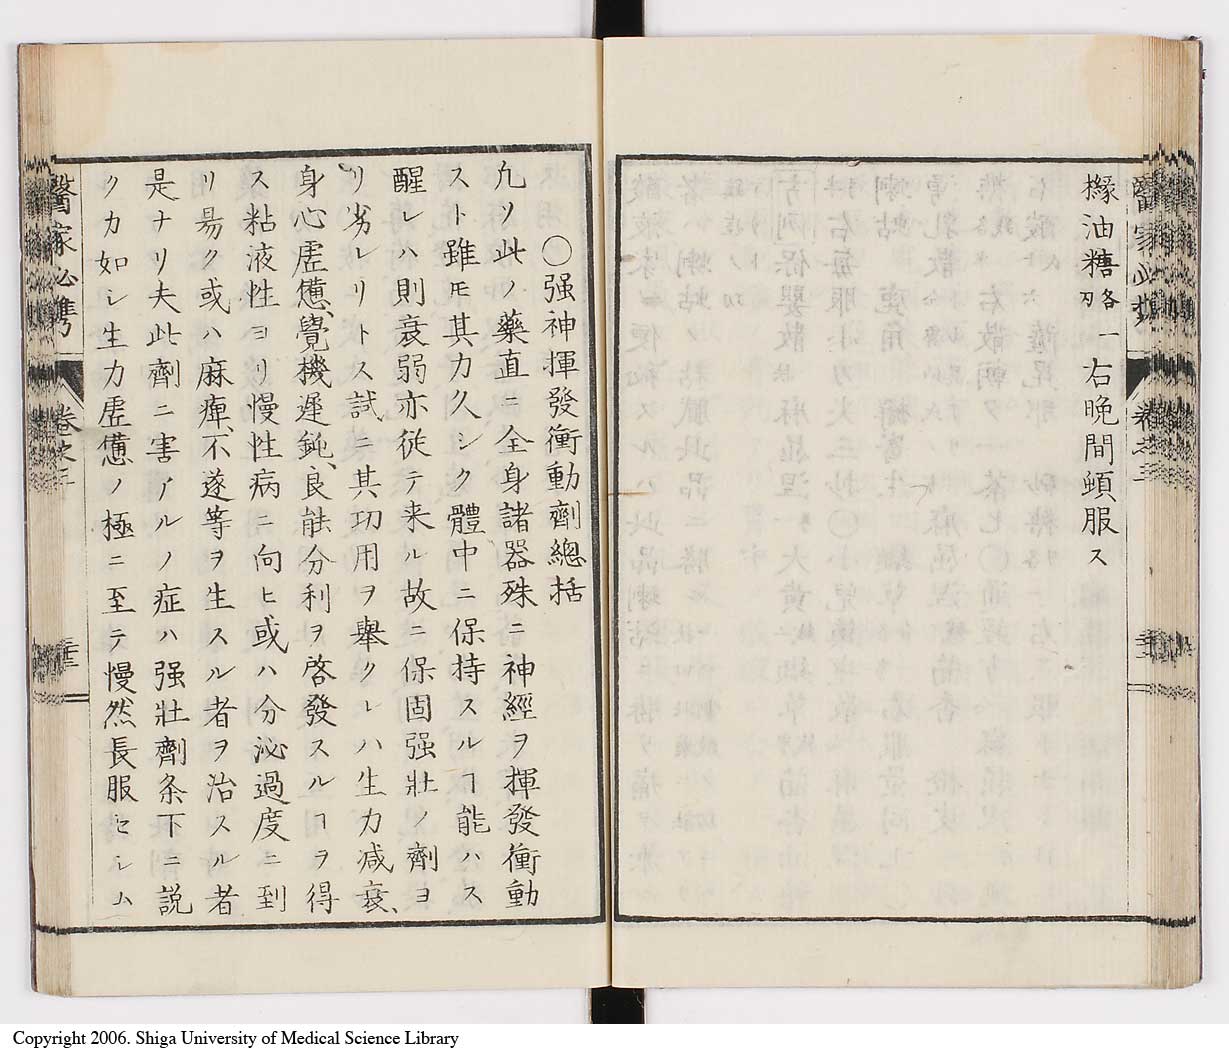 櫞油糖 各列 一 右晩間頓服ス
〇强神揮發衝動劑總括
凡ソ此ノ藥直ニ全身諸器殊ニ神經ヲ揮發衝動
スト雖モ其力久シク體中ニ保持スルヿ能ハス
醒レハ則衰弱亦従テ来ル故ニ保固强壯ノ劑ヨ
リ劣レリトス試ニ其功用ヲ擧クレハ生力减衰、
身心虛憊、覺機遲鈍、良能分利ヲ啓發スルヿヲ得
ス粘液性ヨリ慢性病ニ向ヒ或ハ分泌過度ニ到
リ易ク或ハ麻痺、不遂等ヲ生スル者ヲ治スル者
是ナリ夫此劑ニ害アルノ症ハ强壯劑条下ニ説
クカ如シ生力虛憊ノ極ニ至テ慢然長服セシム
醫家必携
卷之三
Copyright 2006. Shiga University of Medical Science Library